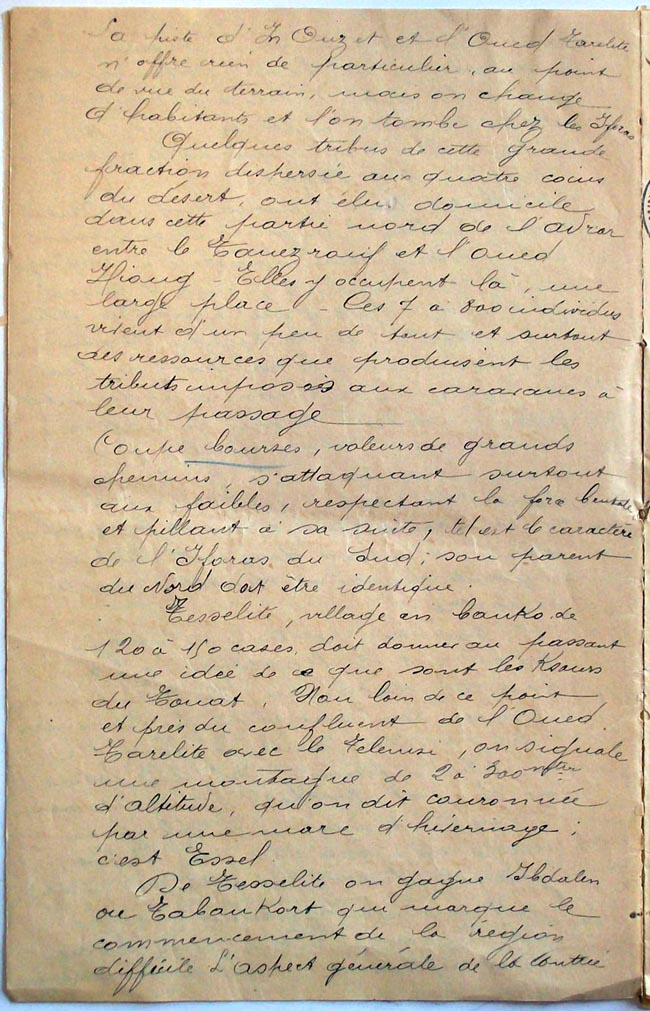 La piste d'In Ouzet et l'Oued Tarelite
n'offre rien de particulier, au point
de vue du terrain, mais on change
d'habitants et l'on tombe chez les Iforas
Quelques tribus de cette grande
fraction dispersée aux quatre coins
du désert, ont élu domicile
dans cette partie nord de l'Adrar
entre le Tanezrouf et l'Oued
Elles y occupent là, une
large place - Ces 7 à 800 individus
vivent d'un peu de tout et surtout
des ressources que produisent les
tributs imposés aux caravanes à
leur passage
Coupe bourses, voleurs de grands
chemins, s'attaquant surtout
aux faibles, respectant la force brutale
et pillant à sa suite, tel est le caractère
de l'Iforas du Sud; son parent
du Nord doit être identique.
Tesselite, village en banko de
120 à 150 cases, doit donner au passant
une idée de ce que sont les Ksours
du Touat. Non loin de ce point
et près du confluent de l'Oued
Tarelite avec le Telemsi, on signale
une montagne de 2 à 300 mètres
d'altitude, qu'on dit couronnée
par une mare d'hivernage;
c'est Essel
De Tesselite on gagne Ibdalen
ou Tabankort qui marque le
commencement de la région
difficile L'aspect générale de la contrée